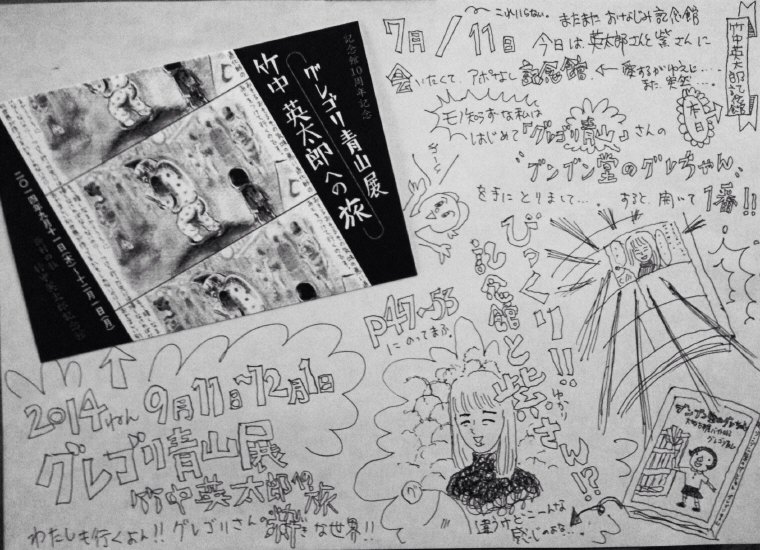 記念館10周年記念
グレゴリ青山展
竹中英太郎への旅
二〇一四年九月十一日(木)～十二月一日(月)
7月/11日
これいらない。
またまたおなじみ記念館
今日は英太郎さんと紫さんに
会いたくて、アポなし記念館
竹中英太郎記念館
本日
モノ知らずな私は
はじめて『グレゴリ青山』さんの
"グンゲン堂のグレちゃん"
を手にとりまして… すると、開いて1番!!
びっくり!!
記念館と紫さん!?
P47～53
にのってまふ。
違うけどこーんな
感じのよな…
グレゴリ青山
2014ねん 9月11日～12月1日
グレゴリ青山展
竹中英太郎への旅
わたしも行くよん!! グレゴリさんの粋な世界!!